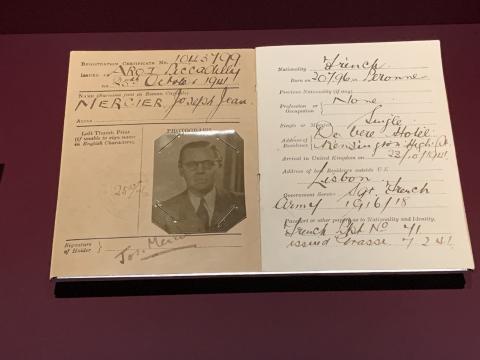 REGISTRATION CERTIFICATE No. 1043799
ISSUED AT AROZ Piccadilly
ON 25th October 1941
NAME (Surname first in Roman Capitals)
MERCIER, Joseph Jean.
ALIAS
Left Thumb Print
(if unable to sign name
in English Characters).
PHOTOGRAPH
Signature
of Holder
Jos. Mercier
Nationality French
Born on 20/96 in Peronne
Previous Nationality (if any)
Profession or
Occupation
None
Single or Married Single
Address of
Residence
De Vere Hotel
Kensington High St
Arrival in United Kingdom on
Address of last Residence outside U.K.
Lisbon
Government Service Sgt. French
Army 1916/18
Passport or other papers as to Nationality and Identity.
French Ppt No 41
issued Grasse